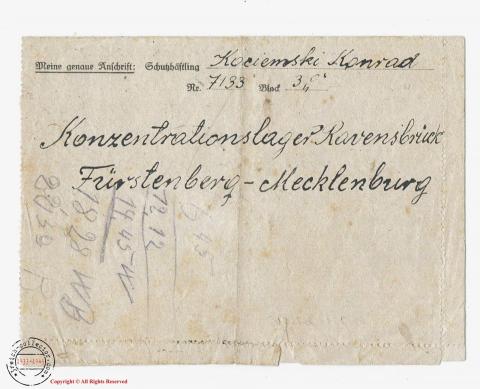 Meine genaue Anschrift: Schutzhäftling Kociemski Konrad
Nr. 7133 Block 3
Konzentrationslager Ravensbrück
Fürstenberg - Mecklenburg
12,12
14,45 W
18 28 W B
reich-collector.com
1933-1945
Copyright © All Rights Reserved